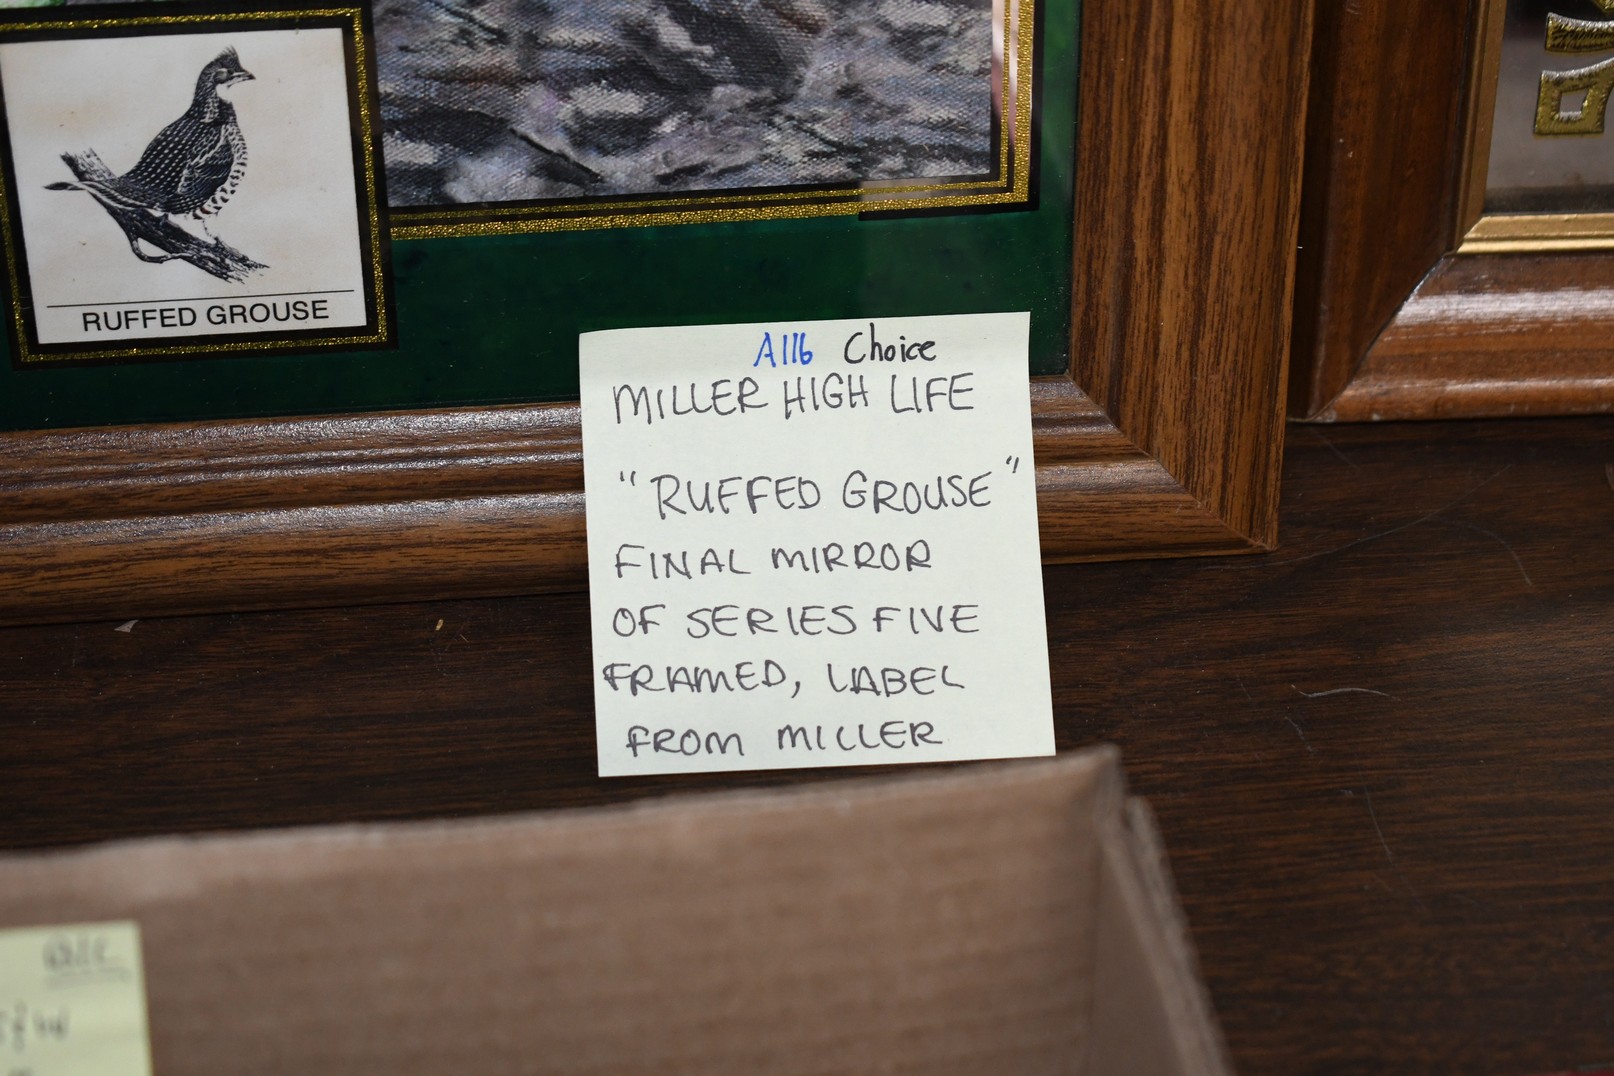 RUFFED GROUSE
A116 Choice
MILLER HIGH LIFE
"RUFFED GROUSE"
FINAL MIRROR
OF SERIES FIVE
FRAMED, LABEL
FROM MILLER